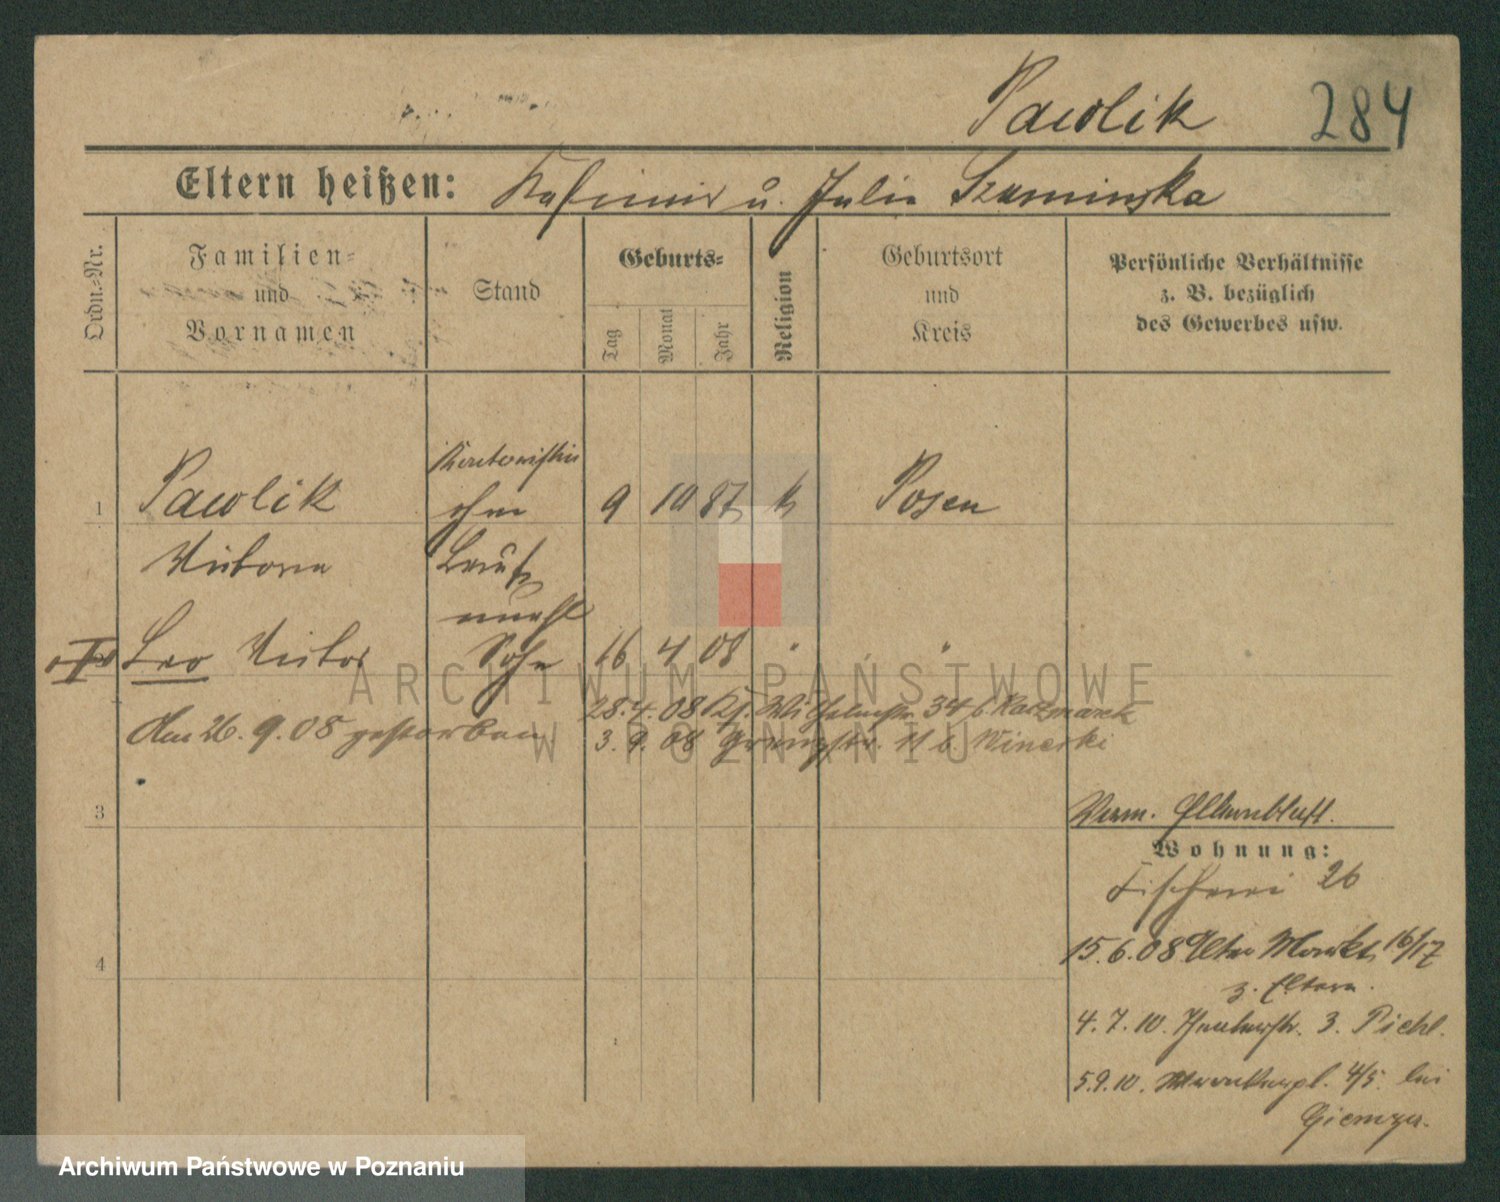 Pawlik 284
Eltern heißen: Kasimir u. Julie Szuminska
Ordn.-Nr.
Familien-
und
Vornamen
Stand
Geburts-
Tag
Monat
Jahr
Religion
Geburtsort
und
Kreis
Persönliche Verhältnisse
z. B. bezüglich
des Gewerbes usw.
Kontoristin
1 Pawlik ohne 9 10 87 k Posen
Viktoria Beruf
unehl
Leo Victor Sohn 16 4 08 " "
28.4.08 Wilhelmstr. 34 b Kaczmarek
Am 26.9.08 gestorben
3.9.08 11 b. Winecki
3
Verm.
Wohnung:
Fischerei 26
15.6.08 Alter Markt 16/17
4
z. Eltern.
4.7.10. 3. Piehl.
5.9.10. 4/5 bei
ARCHIWUM PAŃSTWOWE
W POZNANIU
Archiwum Państwowe w Poznaniu